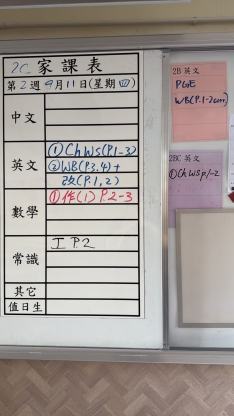 2C 家課表
第2週 9月11日(星期四)
中文
英文
①ChWS(P.1-3)
②WB(P.3,4)+
改(P.1,2)
數學
①作(1) P.2-3
常識
工 P.2
其它
值日生
2B 英文
PGE
WB(P.1-2corr)
2BC 英文
①ChWS p1-2